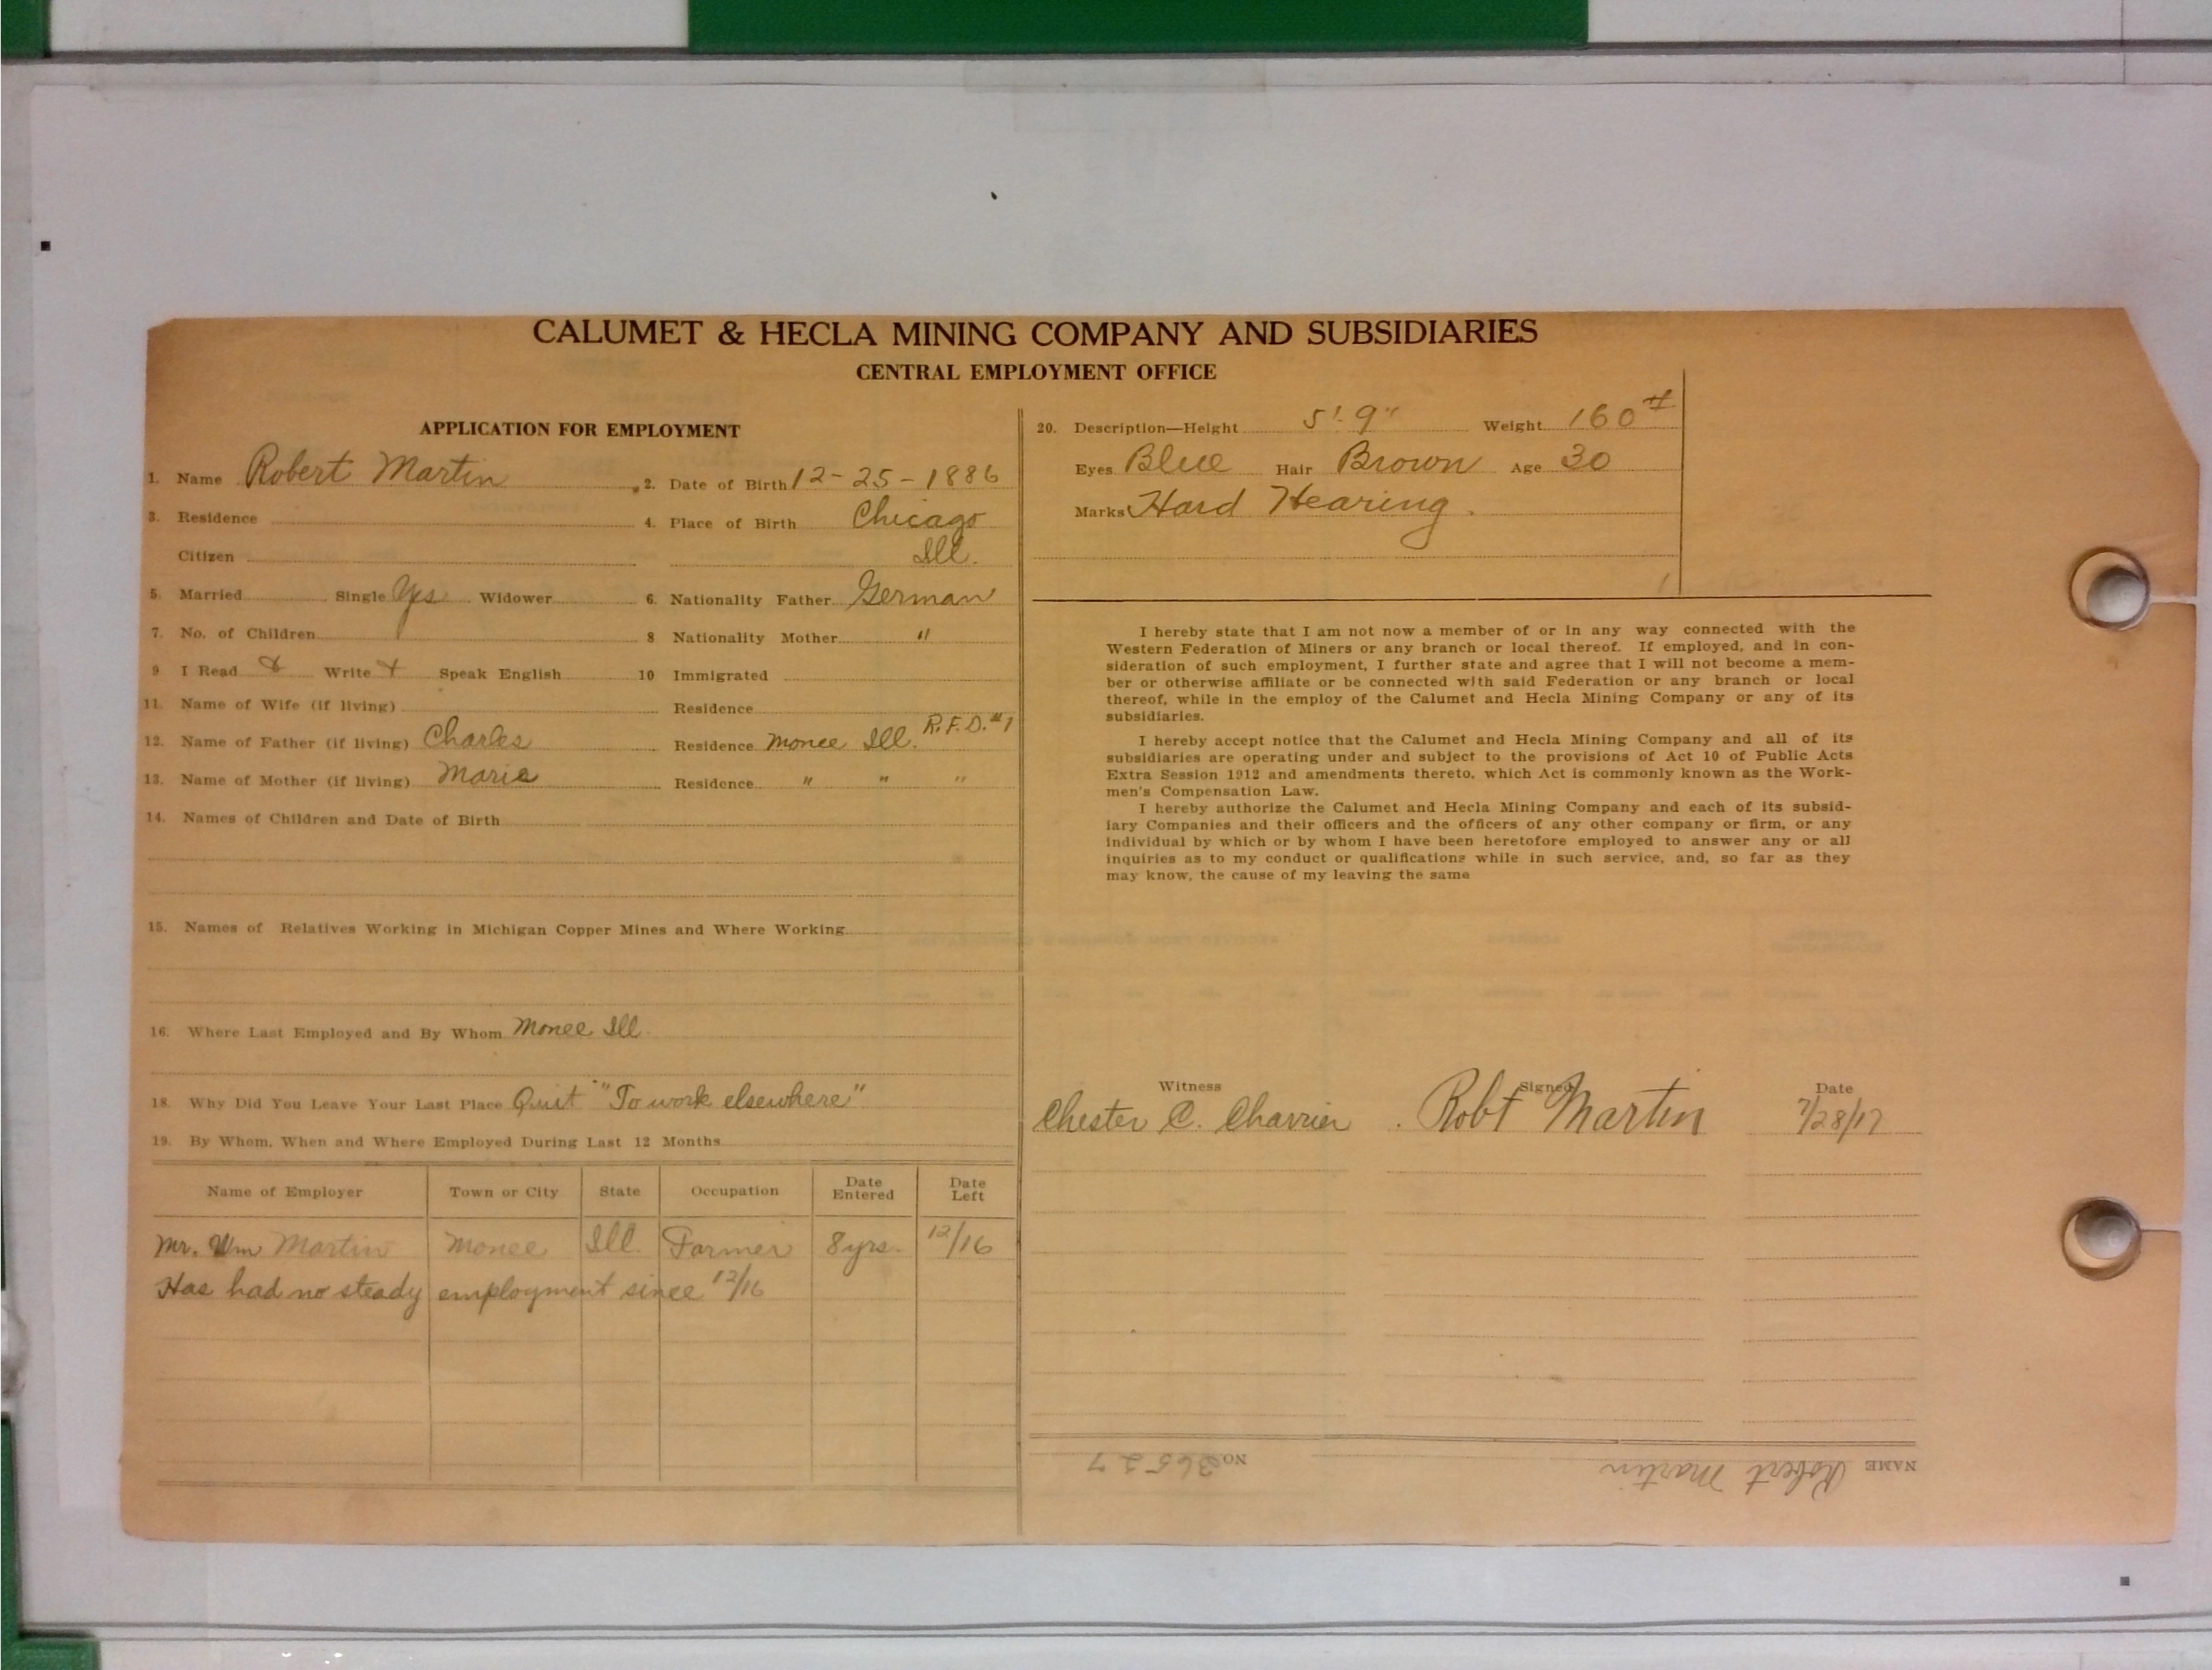 CALUMET & HECLA MINING COMPANY AND SUBSIDIARIES
CENTRAL EMPLOYMENT OFFICE
APPLICATION FOR EMPLOYMENT
1. Name Robert Martin 2. Date of Birth 12-25-1886
3. Residence 4. Place of Birth Chicago
Citizen Ill.
5. Married Single Yes Widower 6. Nationality Father German
7. No. of Children 8 Nationality Mother "
9 I Read Write Speak English 10 Immigrated
11. Name of Wife (if living) Residence
12. Name of Father (if living) Charles Residence Monee Ill. R.F.D. #1
13. Name of Mother (if living) Marie Residence " " "
14. Names of Children and Date of Birth
15. Names of Relatives Working in Michigan Copper Mines and Where Working
16. Where Last Employed and By Whom Monee Ill
18. Why Did You Leave Your Last Place Quit "To work elsewhere"
19. By Whom, When and Where Employed During Last 12 Months
Name of Employer Town or City State Occupation Date Entered Date Left
Mr. Wm Martin Monee Ill. Farmer 8 yrs. 12/16
Has had no steady employment since 12/16
20. Description—Height 5' 9" Weight 160 #
Eyes Blue Hair Brown Age 30
Marks Hard Hearing.
I hereby state that I am not now a member of or in any way connected with the
Western Federation of Miners or any branch or local thereof. If employed, and in con-
sideration of such employment, I further state and agree that I will not become a mem-
ber or otherwise affiliate or be connected with said Federation or any branch or local
thereof, while in the employ of the Calumet and Hecla Mining Company or any of its
subsidiaries.
I hereby accept notice that the Calumet and Hecla Mining Company and all of its
subsidiaries are operating under and subject to the provisions of Act 10 of Public Acts
Extra Session 1912 and amendments thereto, which Act is commonly known as the Work-
men's Compensation Law.
I hereby authorize the Calumet and Hecla Mining Company and each of its subsid-
iary Companies and their officers and the officers of any other company or firm, or any
individual by which or by whom I have been heretofore employed to answer any or all
inquiries as to my conduct or qualifications while in such service, and, so far as they
may know, the cause of my leaving the same
Witness Signed Date
Chester C. Charrier Robt Martin 7/28/17
NAME Robert Martin NO 36527